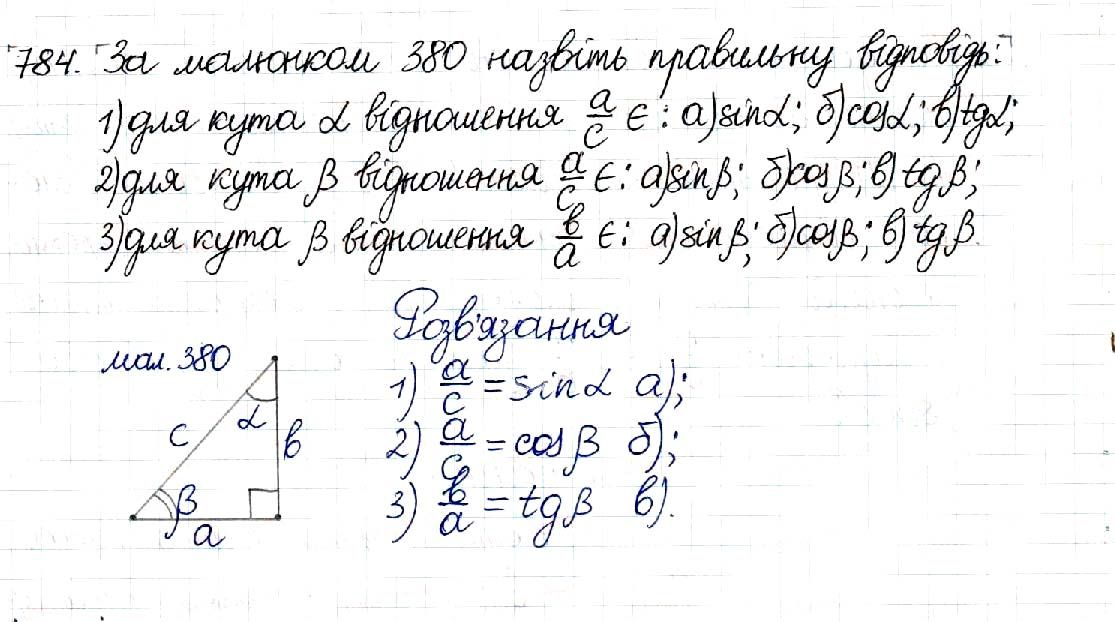 784. За малюнком 380 назвіть правильну відповідь:
1) для кута α відношення a/c є: а) sinα; б) cosα; в) tgα;
2) для кута β відношення a/c є: а) sinβ; б) cosβ; в) tgβ;
3) для кута β відношення в/a є: а) sinβ; б) cosβ; в) tgβ.
Розв'язання
мал. 380
1) a/c = sinα а);
2) a/c = cosβ б);
3) в/a = tgβ в).
α
c
в
β
a